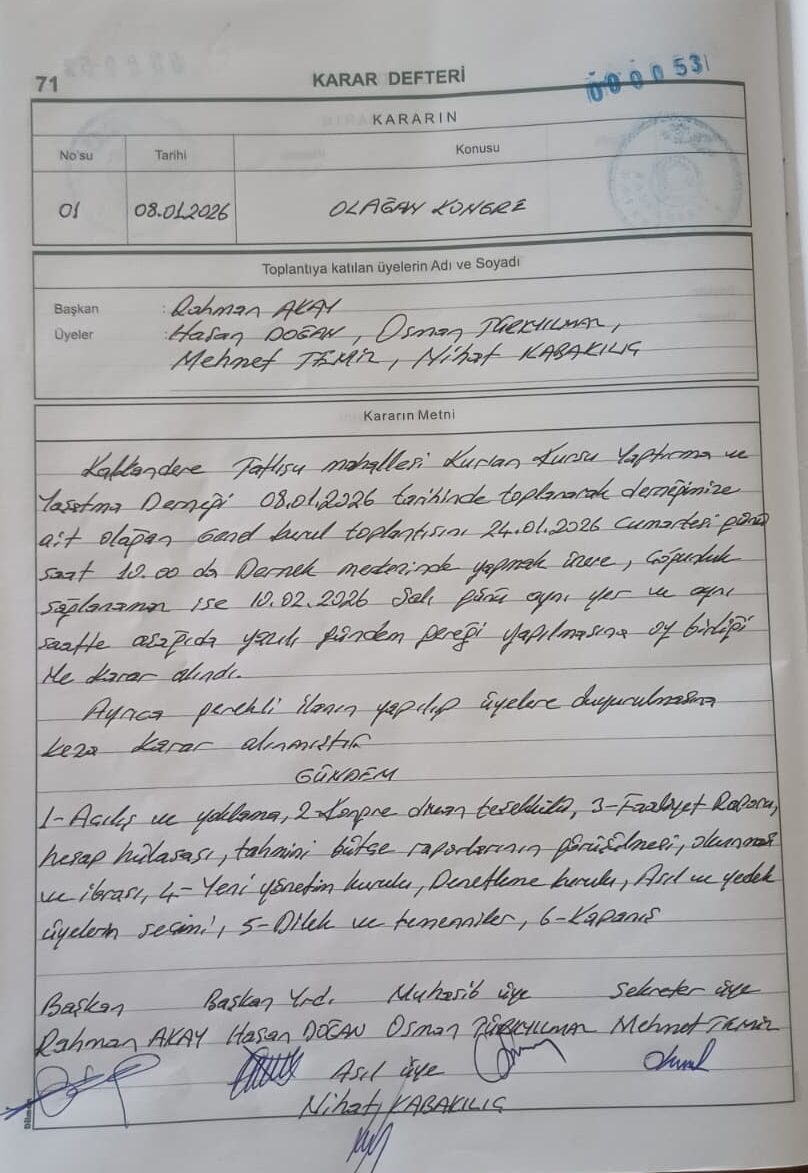 71
KARAR DEFTERİ
000053
KARARIN
No'su
Tarihi
Konusu
01
08.01.2026
OLAĞAN KONGRE
Toplantıya katılan üyelerin Adı ve Soyadı
Başkan : Rahman AKAY
Üyeler : Hasan DOĞAN, Osman TÜRKYILMAZ,
Mehmet TEMİZ, Nihat KABAKILIÇ
Kararın Metni
Kalkandere Tatlısu mahallesi Kur'an Kursu Yaptırma ve
Yaşatma Derneği 08.01.2026 tarihinde toplanarak derneğimize
ait olağan Genel kurul toplantısını 24.01.2026 cumartesi günü
saat 10.00 da Dernek merkezinde yapmak üzere, Çoğunluk
sağlanamaz ise 10.02.2026 Salı günü aynı yer ve aynı
saatte aşağıda yazılı gündem gereği yapılmasına oy birliği
ile karar alındı.
Ayrıca gerekli ilanın yapılıp üyelere duyurulmasına
keza karar alınmıştır
GÜNDEM
1-Açılış ve yoklama, 2-Kongre divan teşekkülü, 3-Faaliyet Raporu,
hesap hülasası, tahmini bütçe raporlarının görüşülmesi, okunması
ve ibrası, 4-Yeni yönetim kurulu, Denetleme kurulu, Asıl ve yedek
üyelerin seçimi, 5-Dilek ve temenniler, 6-Kapanış
Başkan Başkan Yrd. Muhasib üye Sekreter üye
Rahman AKAY Hasan DOĞAN Osman TÜRKYILMAZ Mehmet TEMİZ
Asıl üye
Nihat KABAKILIÇ